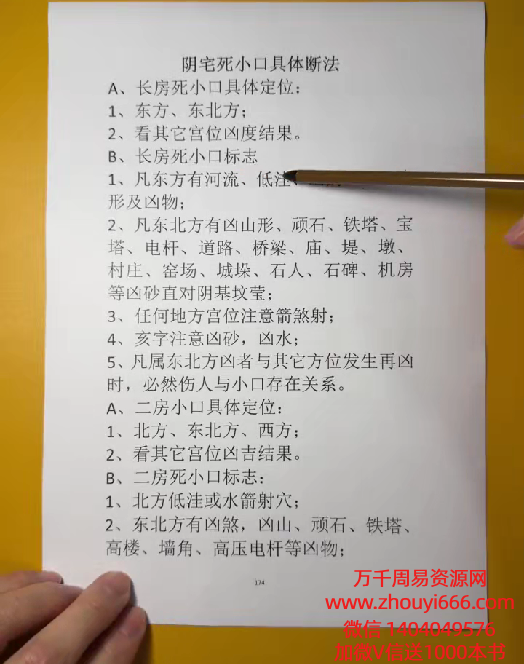 阴宅死小口具体断法
A、长房死小口具体定位：
1、东方、东北方；
2、看其它宫位凶度结果。
B、长房死小口标志
1、凡东方有河流、低洼、
形及凶物；
2、凡东北方有凶山形、顽石、铁塔、宝
塔、电杆、道路、桥梁、庙、堤、墩、
村庄、窑场、城垛、石人、石碑、机房
等凶砂直对阴基坟莹；
3、任何地方宫位注意箭煞射；
4、亥字注意凶砂，凶水；
5、凡属东北方凶者与其它方位发生再凶
时，必然伤人与小口存在关系。
A、二房小口具体定位：
1、北方、东北方、西方；
2、看其它宫位凶吉结果。
B、二房死小口标志：
1、北方低洼或水箭射穴；
2、东北方有凶煞，凶山、顽石、铁塔、
高楼、墙角、高压电杆等凶物；
134
万千周易资源网
www.zhouyi666.com
微信 1404049576
加微V信送1000本书